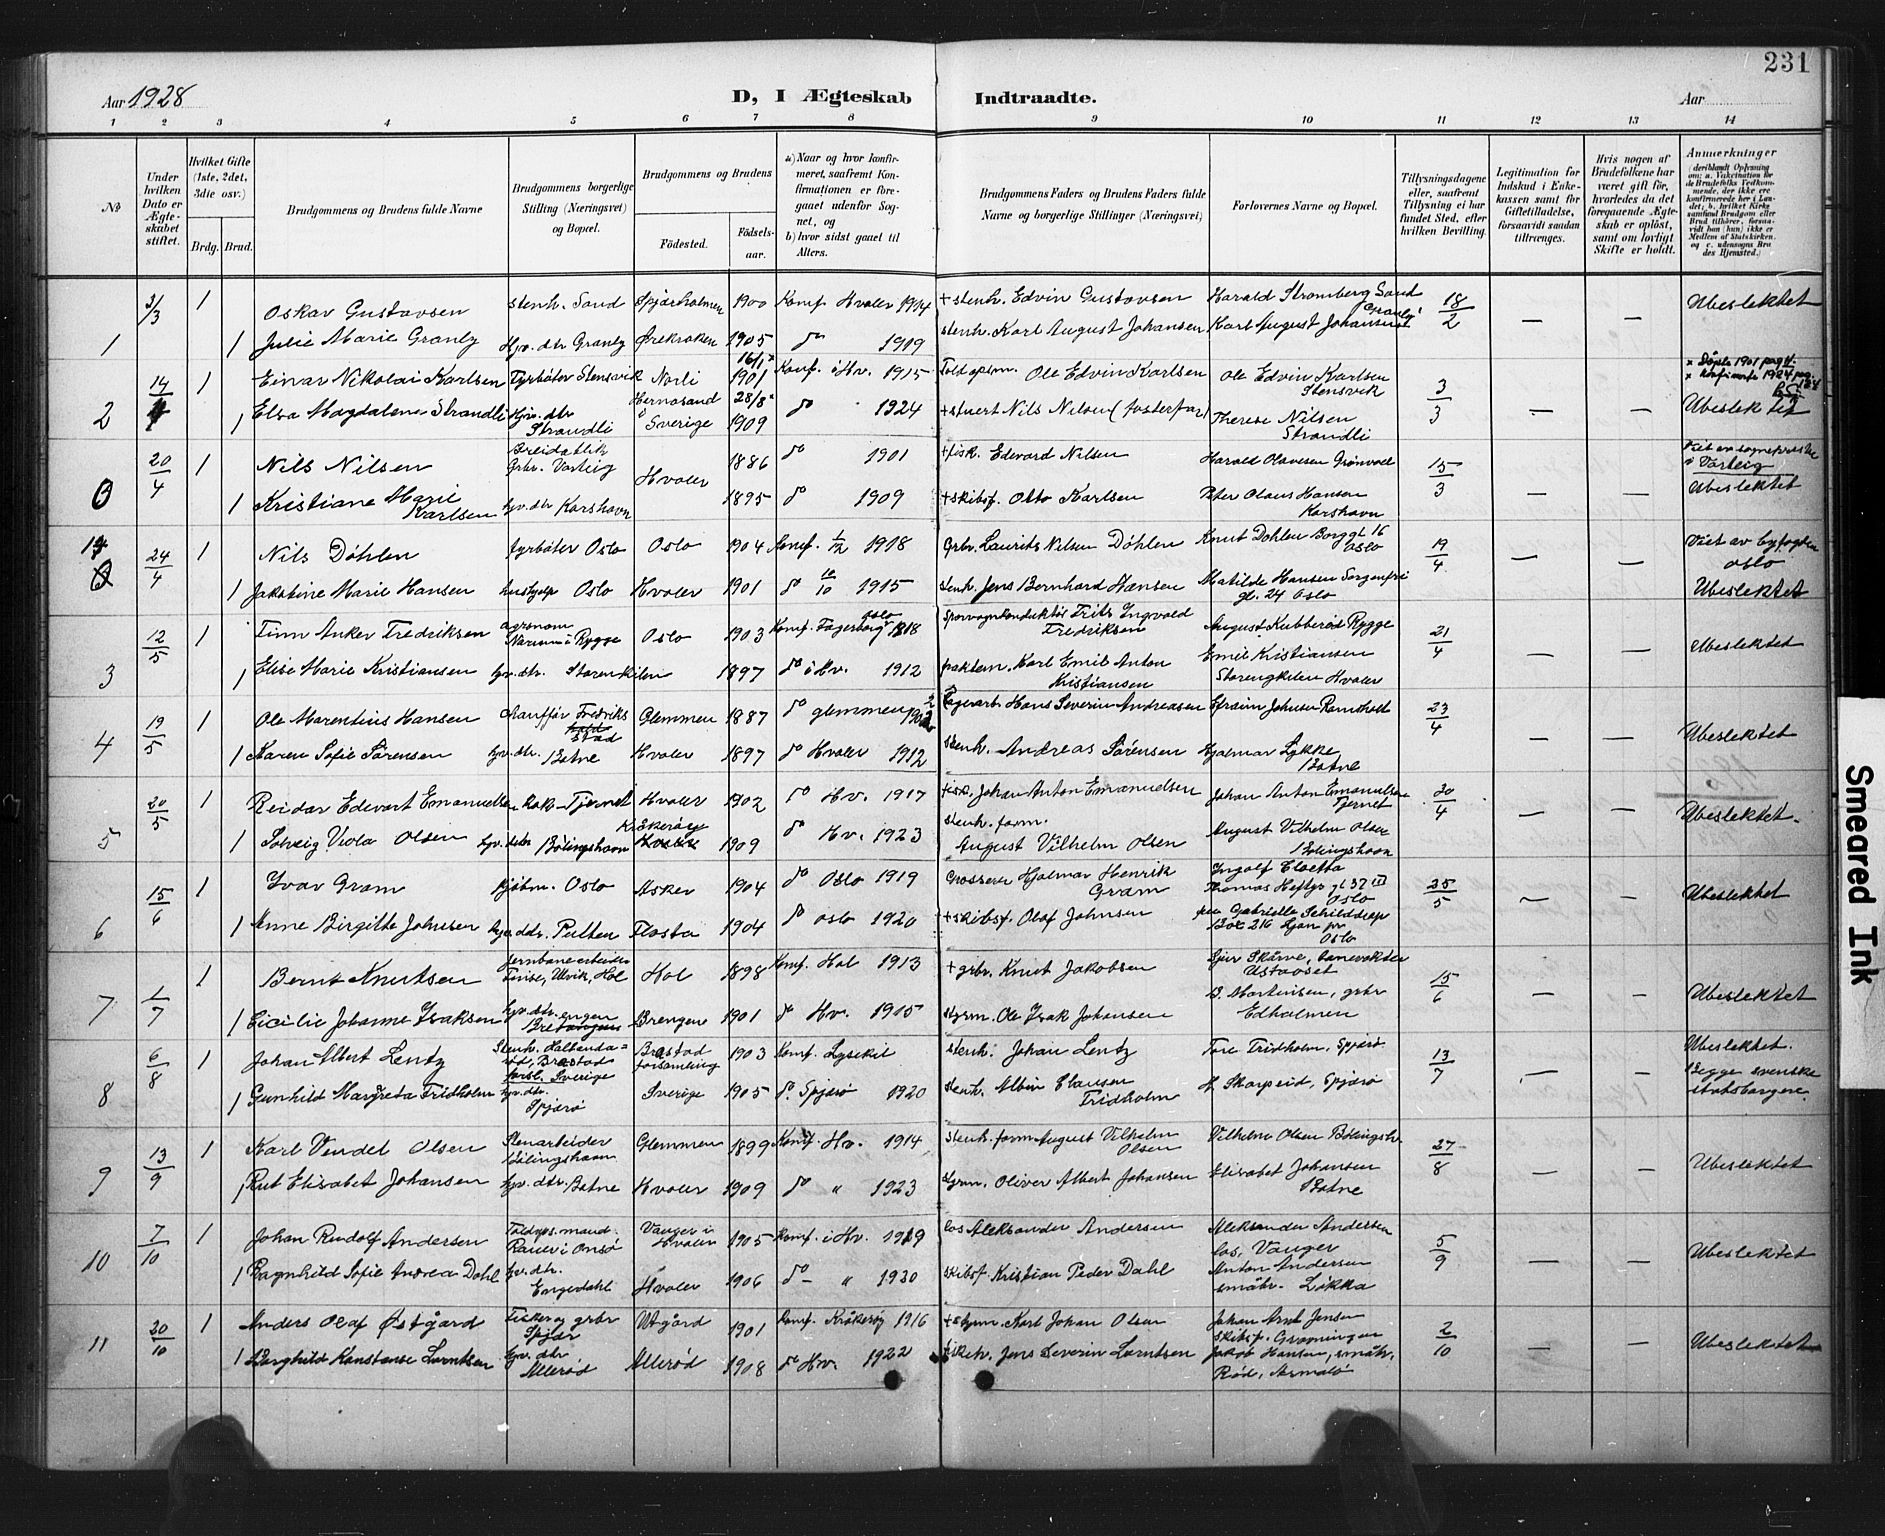 231
Aar 1928
D, I Ægteskab Indtraadte.
Aar
1 2 3 4 5 6 7 8 9 10 11 12 13 14
No
Under hvilken Dato er Ægteskabet stiftet.
Hvilket Gifte (1ste, 2det, 3die osv.)
Brdg. Brud.
Brudgommens og Brudens fulde Navne
Brudgommens borgerlige Stilling (Næringsvei) og Bopæl.
Brudgommens og Brudens
Fødested. Fødselsaar.
a) Naar og hvor konfirmeret, saafremt Konfirmationen er foregaaet udenfor Sognet, og
b) hvor sidst gaaet til Alters.
Brudgommens Faders og Brudens Faders fulde Navne og borgerlige Stillinger (Næringsvei)
Forlovernes Navne og Bopæl.
Tillysningsdagene eller, saafremt Tillysning ei har fundet Sted, efter hvilken Bevilling.
Legitimation for Indskud i Enkekassen samt for Giftetilladelse, forsaavidt saadan tiltrænges.
Hvis nogen af Brudefolkene har været gift før, hvorledes da det foregaaende Ægteskab er opløst, samt om lovligt Skifte er holdt.
Anmerkninger
3/3 1 Oskar Gustavsen stenh. Sand Spjærholmen 1900 Konf. Hvaler 1914 + stenh. Edvin Gustavsen Harald Stromberg Sand 18/2 — — Ubeslektet
1 1 Julie Marie Granly Hjv. dtr Granly Ørekroken 1905 do 1919 stenh. Karl August Johansen Karl August Johansen Granly
2 14/4 1 Einar Nikolai Karlsen Fyrbøter Stensvik Norli 16/1 1901 Konf. i Hv. 1915 Toldopsm. Ole Edvin Karlsen Ole Edvin Karlsen Stensvik 3/3 — — Ubeslektet
1 Elsa Magdalene Strandli Hjv. dtr Strandli Hernosand Sverige 28/8 1909 do 1924 + stuert Nils Nilsen (fosterfar) Therese Nilsen Strandli
20/4 1 Nils Nilsen Breidablik Grbr. Varteig Hvaler 1886 do 1901 + fisk. Edvard Nilsen Harald Olavesen Grønvold 15/3 — — Viet av sognepresten i Varteig Ubeslektet
0 1 Kristiane Marie Karlsen hjv. dtr Korshavn 1895 do 1909 + skibsf. Otto Karlsen Peter Olaus Hansen Korshavn
24/4 1 Nils Døhlen fyrbøter Oslo Oslo 1904 Konf. 1/12 1918 Grbr. Laurits Nilsen Døhlen Knut Dohlen Borggt. 16 Oslo 19/4 — — Viet av byfogden Oslo
1 Jakobine Marie Hansen hushjelp Oslo Hvaler 1901 do 10/10 1915 stenh. Jens Bernhard Hansen Matilde Hansen Sorgenfri gt. 24 Oslo Ubeslektet
3 12/5 1 Finn Anker Fredriksen agronom i Rygge Oslo 1903 Konf. Fagerborg Oslo 1918 Sporvognkonduktør Frits Ingvald Fredriksen August Kubberød Rygge 21/4 — — Ubeslektet
1 Elise Marie Kristiansen hjv. dtr. Storenkilen 1897 do i Hv. 1912 Karl Emil Anton Kristiansen Emil Kristiansen Storengkilen Hvaler
4 19/5 1 Ole Marentius Hansen chauffør Fredrikstad Glemmen 1887 do glemmen Lagerarb. Hans Severin Andreasen Efraim Johnsen Ramsholt 23/4 — — Ubeslektet
1 Karen Sofie Sørensen hjv. dtr. Botne Hvaler 1897 do Hvaler 1912 Stenh. Andreas Sørensen Hjalmar Lykke Botne
5 20/5 1 Reidar Edevart Emanuelsen kok Tjernet Hvaler 1902 do Hv. 1917 fisk. Johan Anton Emanuelsen Johan Anton Emanuelsen Tjernet 20/4 — — Ubeslektet.
1 Solveig Viola Olsen hjv. dtr Bølingshavn 1909 do Hv. 1923 stenh. form. August Vilhelm Olsen August Vilhelm Olsen Bølingshavn
6 15/6 1 Ivar Gram kjøbm. Oslo Asker 1904 do Oslo 1919 Grosserer Hjalmar Henrik Gram Ingolf Cloetta Thomas Heftys gt 37 III Oslo 25/5 — — Ubeslektet
1 Anne Birgitte Johnsen hjv. dtr. Pulten Flosta 1904 do Oslo 1920 + skibsf. Olaf Johnsen fru Gabrielle Box 216 Ljan pr Oslo
7 1/7 1 Bernt Knutsen Jernbanearbeider Finse, Ulvik, Hol Hol 1898 Konf. Hol 1913 + grbr. Knut Jakobsen Sjur Skårve, banevokter Ustaoset 15/6 — — Ubeslektet
1 Cicilie Johanne Isaksen hjv. dtr. Brengen 1901 do Hv. 1915 styrm. Ole Isak Johansen B. Martinsen, grbr Edholmen
8 6/8 1 Johan Albert Lentz Stenh. Brastad forsl. Sverige Brastad forsamling 1903 Konf. Lysekil stenh. Johan Lentz Tore Fridholm, Spjærø 13/7 — — Ubeslektet. Begge svenske statsborgere.
1 Gunhild Margreta Fridholm hjv. dtr. Spjærø Sverige 1905 do Spjærø 1920 stenh. Albin Clausen Fridholm H. Skarpeid, Spjærø
9 13/9 1 Karl Vendel Olsen Stenarbeider Bølingshavn Glemmen 1899 Konf. Hv. 1914 stenh. form August Vilhelm Olsen Vilhelm Olsen Bølingsh. 27/8 — — Ubeslektet
1 Rut Elisabet Johansen hjv. dtr. Botne Hvaler 1909 do " 1923 styrm. Oliver Albert Johansen Elisabet Johansen Botne
10 7/10 1 Johan Rudolf Andersen Toldops. mand Rauer i Onsø Vauger i Hvaler 1905 Konf. i Hv. 1919 los Aleksander Andersen Aleksander Andersen los, Vauger 5/9 — — Ubeslektet
1 Ragnhild Sofie Andrea Dahl hjv. dtr. Engedahl Hvaler 1906 do " 1920 skibsf. Kristian Peder Dahl Anton Andersen småbr. Løkka
11 20/10 1 Anders Olaf Østgård Fisker og grbr Spjær Utgård 1901 Konf. Kråkerøy 1916 + styrm. Karl Johan Olsen Johan Arnt Jensen skibsf. Grønningen 2/10 — — Ubeslektet
1 Borghild Konstanse Lorntsen hjv. dtr Allerød Allerød 1908 do Hv. 1922 Jens Severin Lorntsen Jakob Hansen, småbr, Rød, Asmalø
Smeared Ink